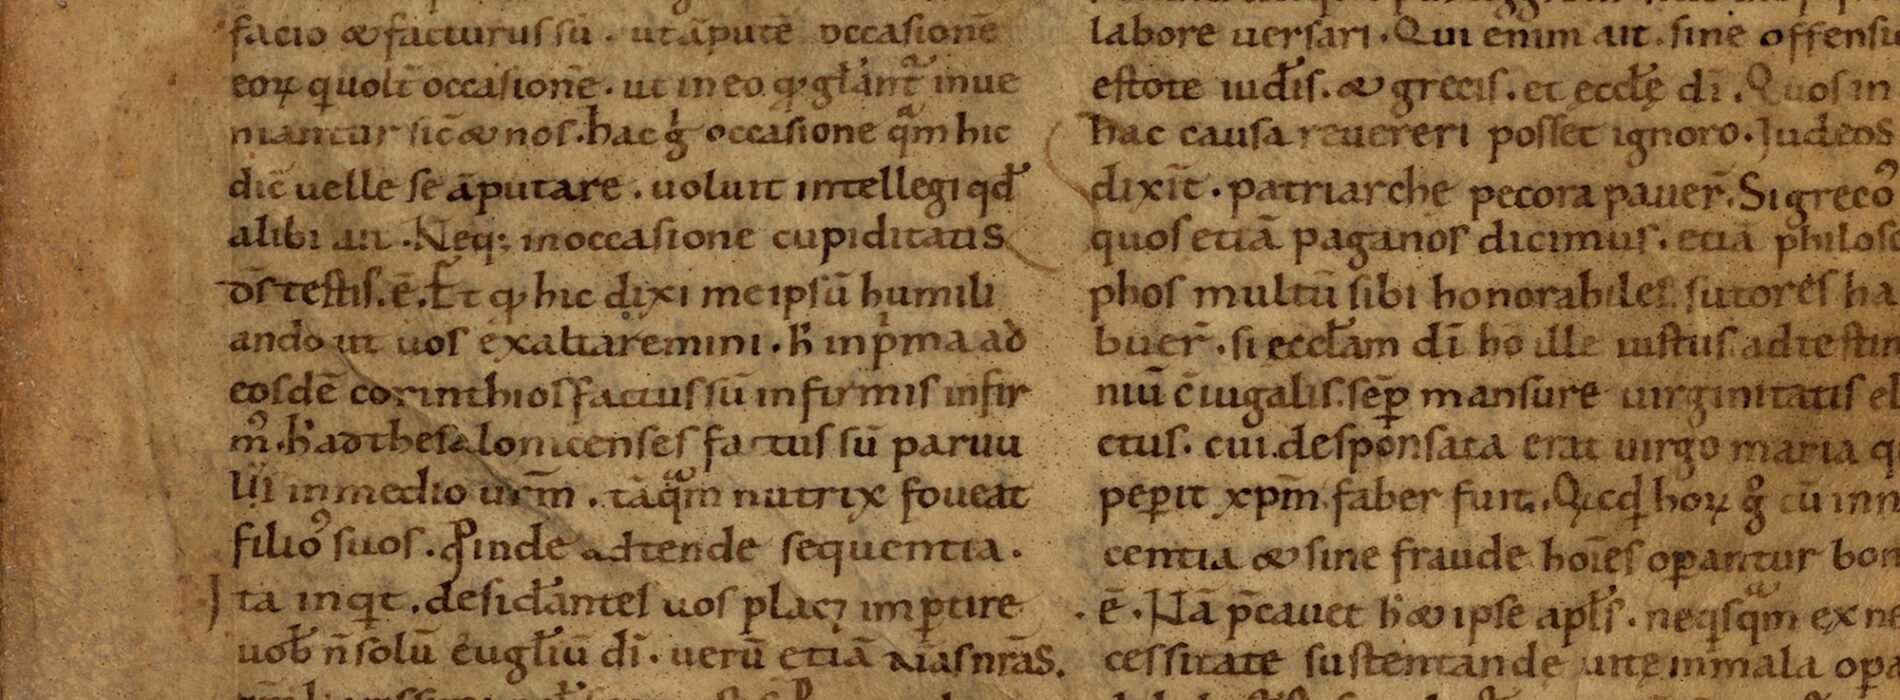 facio & facturus sū. ut āputē occasionē
eoꝝ qui uolt̄ occasionē. ut in eo qͥ gl̄ant̄ inue
niantur sic̄ & nos. hac g̊ occasione qͣm hic
dic̄ uelle se āputare. uoluit intellegi qd̄
alibi ait. Neq; in occasione cupiditatis
d̄s testis. ē. Et qͥ hic dixi me ipsū humili
ando ut uos exaltaremini. h̄ in pͥma ad
eosdē corinthios factus sū infirmis infir
mꝰ. h̄ ad thesalonicenses factus sū paruu
lꝰ in medio ur̄m. tāqͣm nutrix foueat
filioꝰ suos. ꝓinde adtende sequentia.
Ita inqͥt. desid̄antes uos placꝫ imꝑtire
uob̄ n̄ solū eugl̄iū dī. uerū etiā aīas nr̄as.
labore uersari. Qui enim ait. sine offensi
estote iud̄is. & grecis. et eccl̄ę dī. Quos in
hac causa reuereri posset ignoro. Judeos
dixit̄. patriarche pecora pauer̄. Si grecoꝰ
quos etiā paganos dicimus. etiā philoso
phos multū sibi honorabiles. sutores ha
buer̄. si eccl̄am dī. ho ille iustus ad testim
niū c̄iugalis. sēꝑ mansure uirginitatis el
ctus. cui desponsata erat uirgo maria q
peꝑit xp̄m faber fuit. Qͥcqͥd hoꝝ g̊ cū inn
centia & sine fraude hoīes oꝑantur bon
ē. Nā p̄cauet h̄ & ipse apl̄s. neqͥsqͣm ex ne
cessitate sustentande uite in mala opa